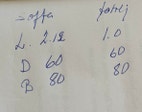 L. 2.12 1.0
D 60 60
B 80 80